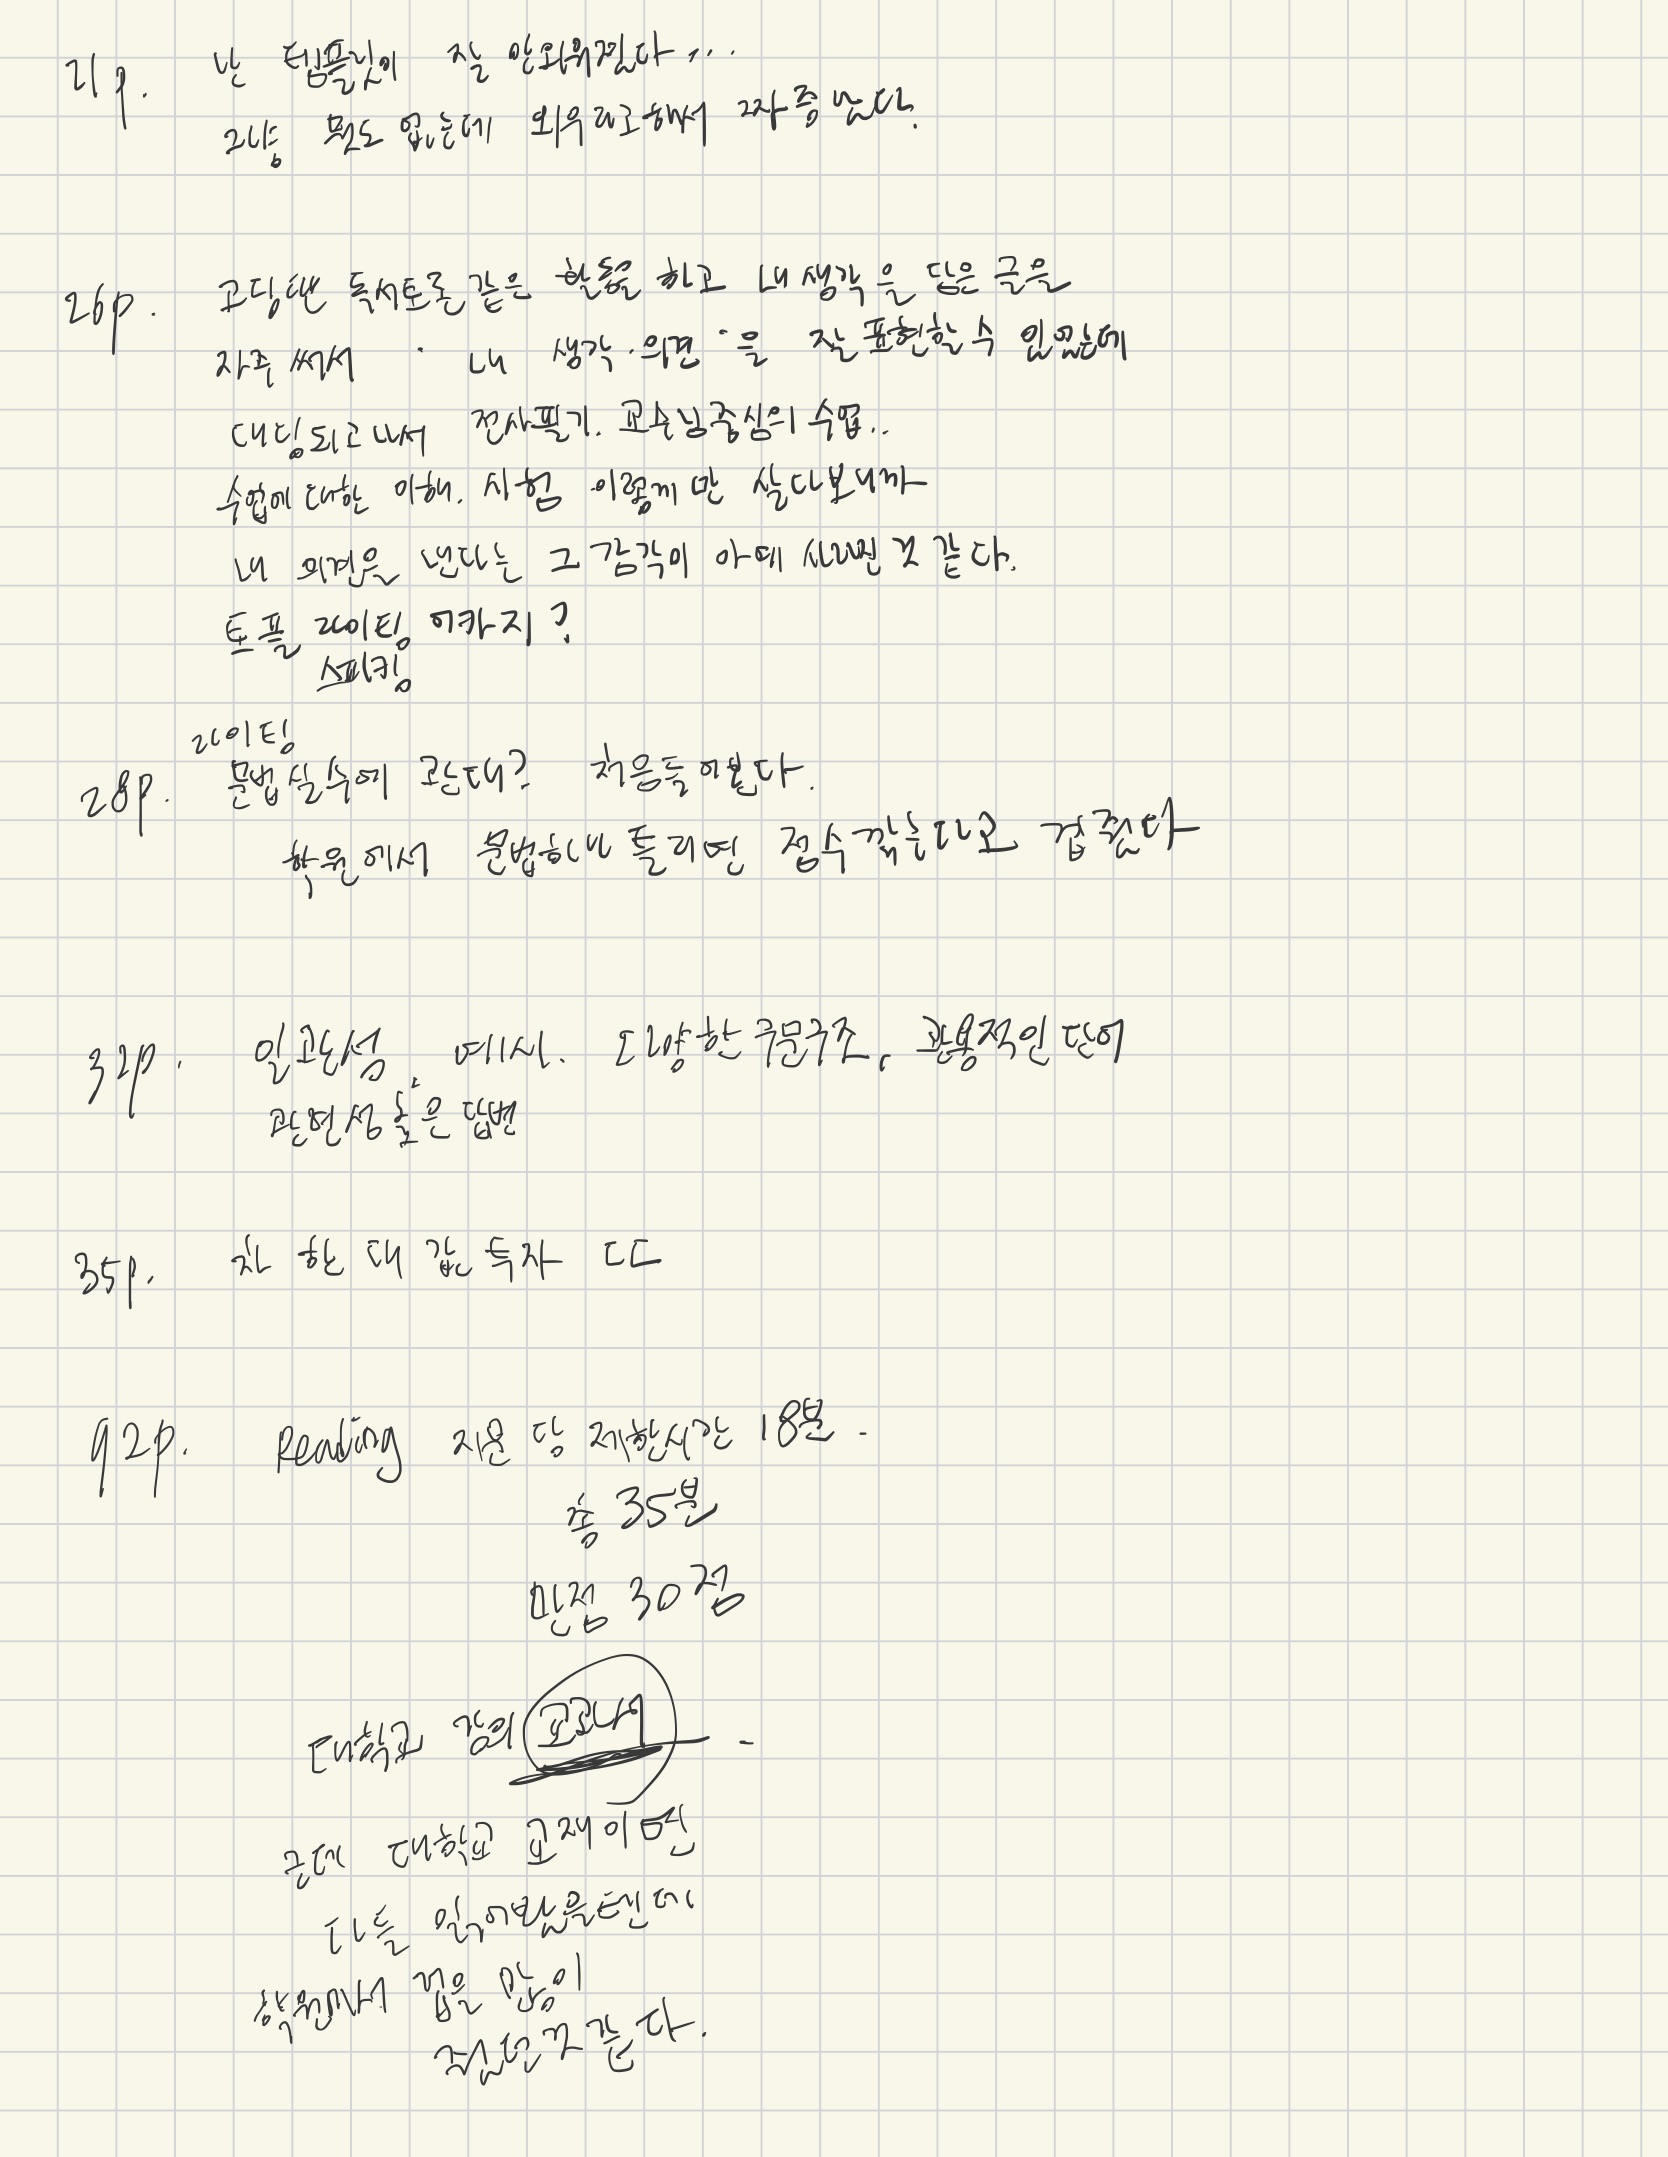 21p. 난 템플릿이 잘 안외워진다...
그냥 뭣도 없는데 외우라고해서 짜증난다.
26p. 고딩땐 독서토론 같은 활동을 하고 내 생각을 담은 글을
자주 써서 내 생각·의견을 잘 표현할 수 있었는데
대딩되고나서 전사필기. 교수님중심의 수업..
수업에 대한 이해. 시험 이렇게만 살다보니까
내 의견은 낸다는 그 감각이 아예 사라진 것 같다.
토플 라이팅 어카지?
스피킹
라이팅
28p. 문법실수에 관대? 처음들어본다.
학원에서 문법하나 틀리면 점수 깎는다고 겁준다
32p. 일관성, 예시. 다양한 구문구조, 관용적인 단어
관련성 높은 답변
35p. 차 한 대 값 독자 ㄷㄷ
92p. Reading 지문 당 제한시간 18분.
총 35분
만점 30점
대학교 강의 교과서
근데 대학교 교재이면
다들 읽어봤을텐데
학원에서 겁을 많이
줬던것 같다.